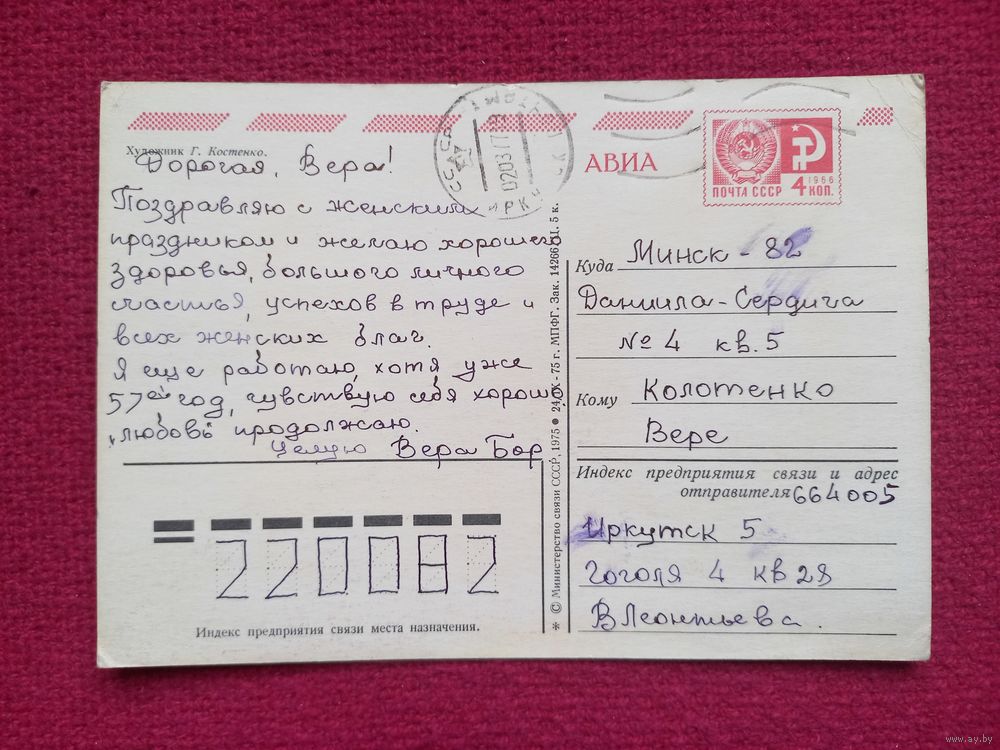 Художник Г. Костенко.
АВИА
ПОЧТА СССР
1966
4 КОП.
СССР
020377
Дорогая, Вера!
Поздравляю с женским
праздником и желаю хорошего
здоровья, большого личного
счастья, успехов в труде и
всех женских благ.
Я еще работаю, хотя уже
57ой год, чувствую себя хорошо,
"любовь" продолжаю.
Целую Вера Бор
Индекс предприятия связи места назначения.
220082
* © Министерство связи СССР, 1975 ● 24/IX-75 г. МПФГ. Зак. 14266 Ц. 5 к.
Куда Минск - 82
Даниила-Сердича
№ 4 кв. 5
Кому Колотенко
Вере
Индекс предприятия связи и адрес
отправителя 664005
Иркутск 5
Гоголя 4 кв 28
В Леонтьева.
www.ay.by